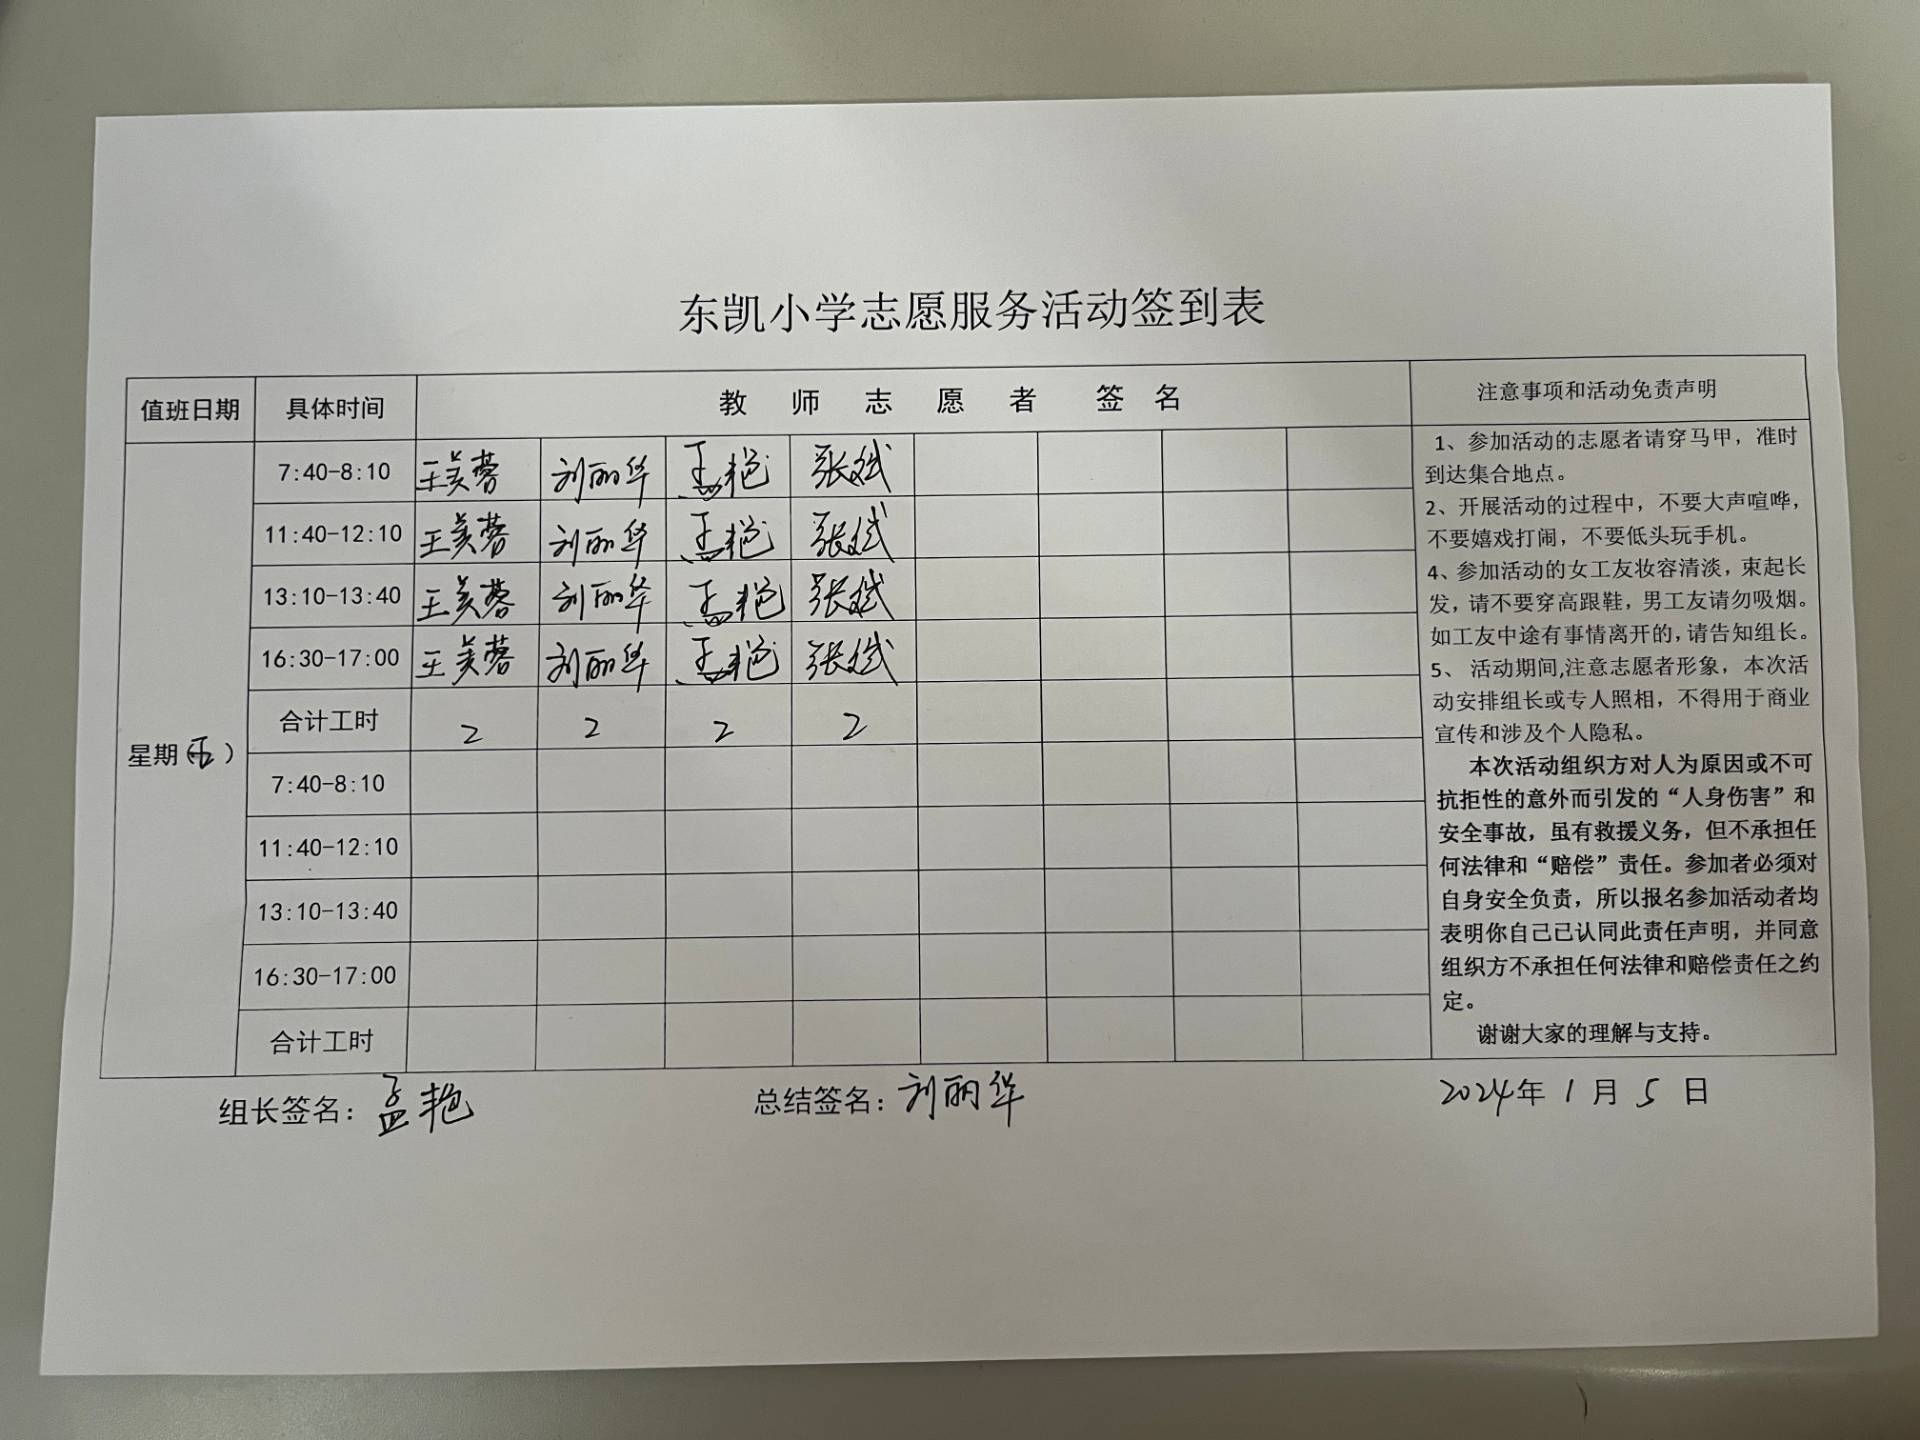 东凯小学志愿服务活动签到表
值班日期 具体时间 教师志愿者 签名 注意事项和活动免责声明
星期(五)
7:40-8:10 王芙蓉 刘丽华 孟艳 张斌
11:40-12:10 王芙蓉 刘丽华 孟艳 张斌
13:10-13:40 王芙蓉 刘丽华 孟艳 张斌
16:30-17:00 王芙蓉 刘丽华 孟艳 张斌
合计工时 2 2 2 2
7:40-8:10
11:40-12:10
13:10-13:40
16:30-17:00
合计工时
1、参加活动的志愿者请穿马甲，准时
到达集合地点。
2、开展活动的过程中，不要大声喧哗，
不要嬉戏打闹，不要低头玩手机。
4、参加活动的女工友妆容清淡，束起长
发，请不要穿高跟鞋，男工友请勿吸烟。
如工友中途有事情离开的，请告知组长。
5、 活动期间,注意志愿者形象，本次活
动安排组长或专人照相，不得用于商业
宣传和涉及个人隐私。
本次活动组织方对人为原因或不可
抗拒性的意外而引发的“人身伤害”和
安全事故，虽有救援义务，但不承担任
何法律和“赔偿”责任。参加者必须对
自身安全负责，所以报名参加活动者均
表明你自己已认同此责任声明，并同意
组织方不承担任何法律和赔偿责任之约
定。
谢谢大家的理解与支持。
组长签名：孟艳 总结签名：刘丽华 2024年1月5日